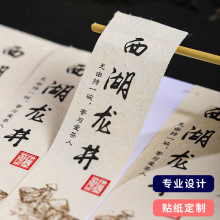 西湖龙井
无由持一碗，寄与爱茶人
西湖龙井
专业设计
贴纸定制